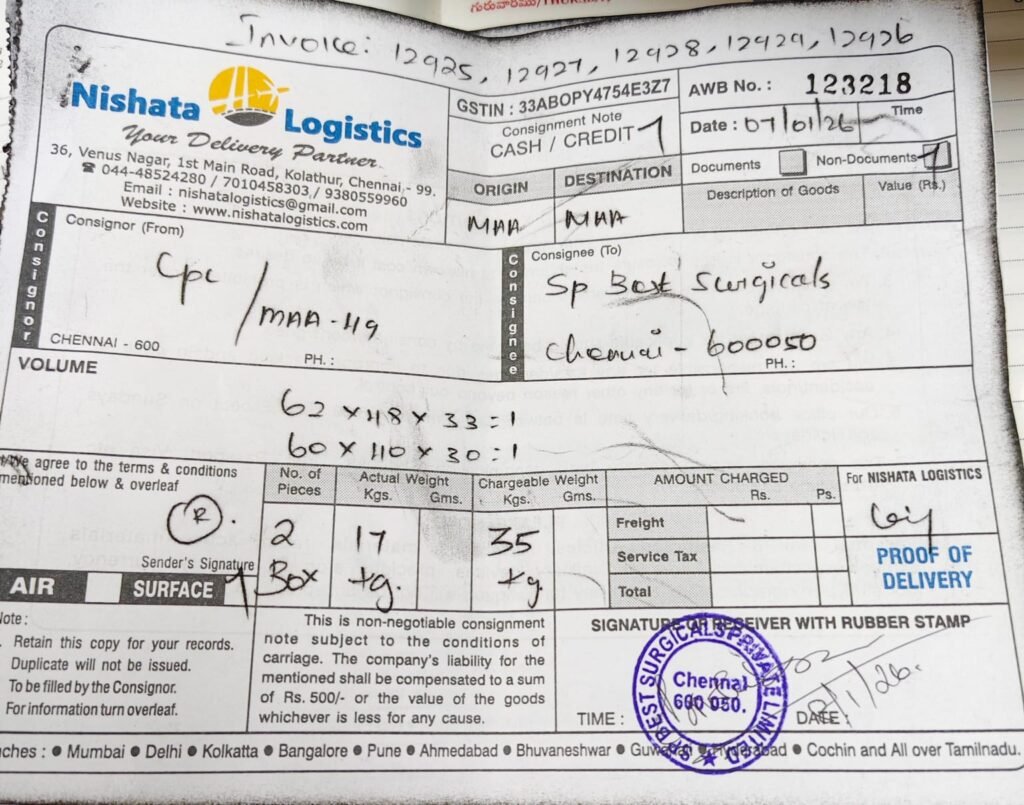 గురువారము/THUR
Invoice: 12925, 12927, 12928, 12929, 12926
Nishata Logistics
Your Delivery Partner
36, Venus Nagar, 1st Main Road, Kolathur, Chennai - 99.
☎ 044-48524280 / 7010458303 / 9380559960
Email : nishatalogistics@gmail.com
Website : www.nishatalogistics.com
GSTIN : 33ABOPY4754E3Z7
Consignment Note
CASH / CREDIT
ORIGIN DESTINATION
MAA MAA
AWB No. : 123218
Date : 07/01/26 Time
Documents Non-Documents
Description of Goods Value (Rs.)
Consignor
Consignor (From)
Cpc / MAA-119
CHENNAI - 600 PH. :
Consignee
Consignee (To)
Sp Best Surgicals
Chennai - 600050
PH. :
VOLUME
62 x 48 x 33 = 1
60 x 110 x 30 = 1
I/We agree to the terms & conditions
mentioned below & overleaf
R
Sender's Signature
AIR SURFACE
No. of Pieces
2
Box
Actual Weight
Kgs. Gms.
17
kg.
Chargeable Weight
Kgs. Gms.
35
kg.
AMOUNT CHARGED
Rs. Ps.
Freight
Service Tax
Total
For NISHATA LOGISTICS
PROOF OF
DELIVERY
Note :
Retain this copy for your records.
Duplicate will not be issued.
To be filled by the Consignor.
For information turn overleaf.
This is non-negotiable consignment
note subject to the conditions of
carriage. The company's liability for the
mentioned shall be compensated to a sum
of Rs. 500/- or the value of the goods
whichever is less for any cause.
SIGNATURE OR RECEIVER WITH RUBBER STAMP
SP BEST SURGICALS PRIVATE LIMITED
Chennai
600 050.
TIME : DATE :
8/1/26.
ches : ● Mumbai ● Delhi ● Kolkatta ● Bangalore ● Pune ● Ahmedabad ● Bhuvaneshwar ● Guwahati ● Hyderabad ● Cochin and All over Tamilnadu.